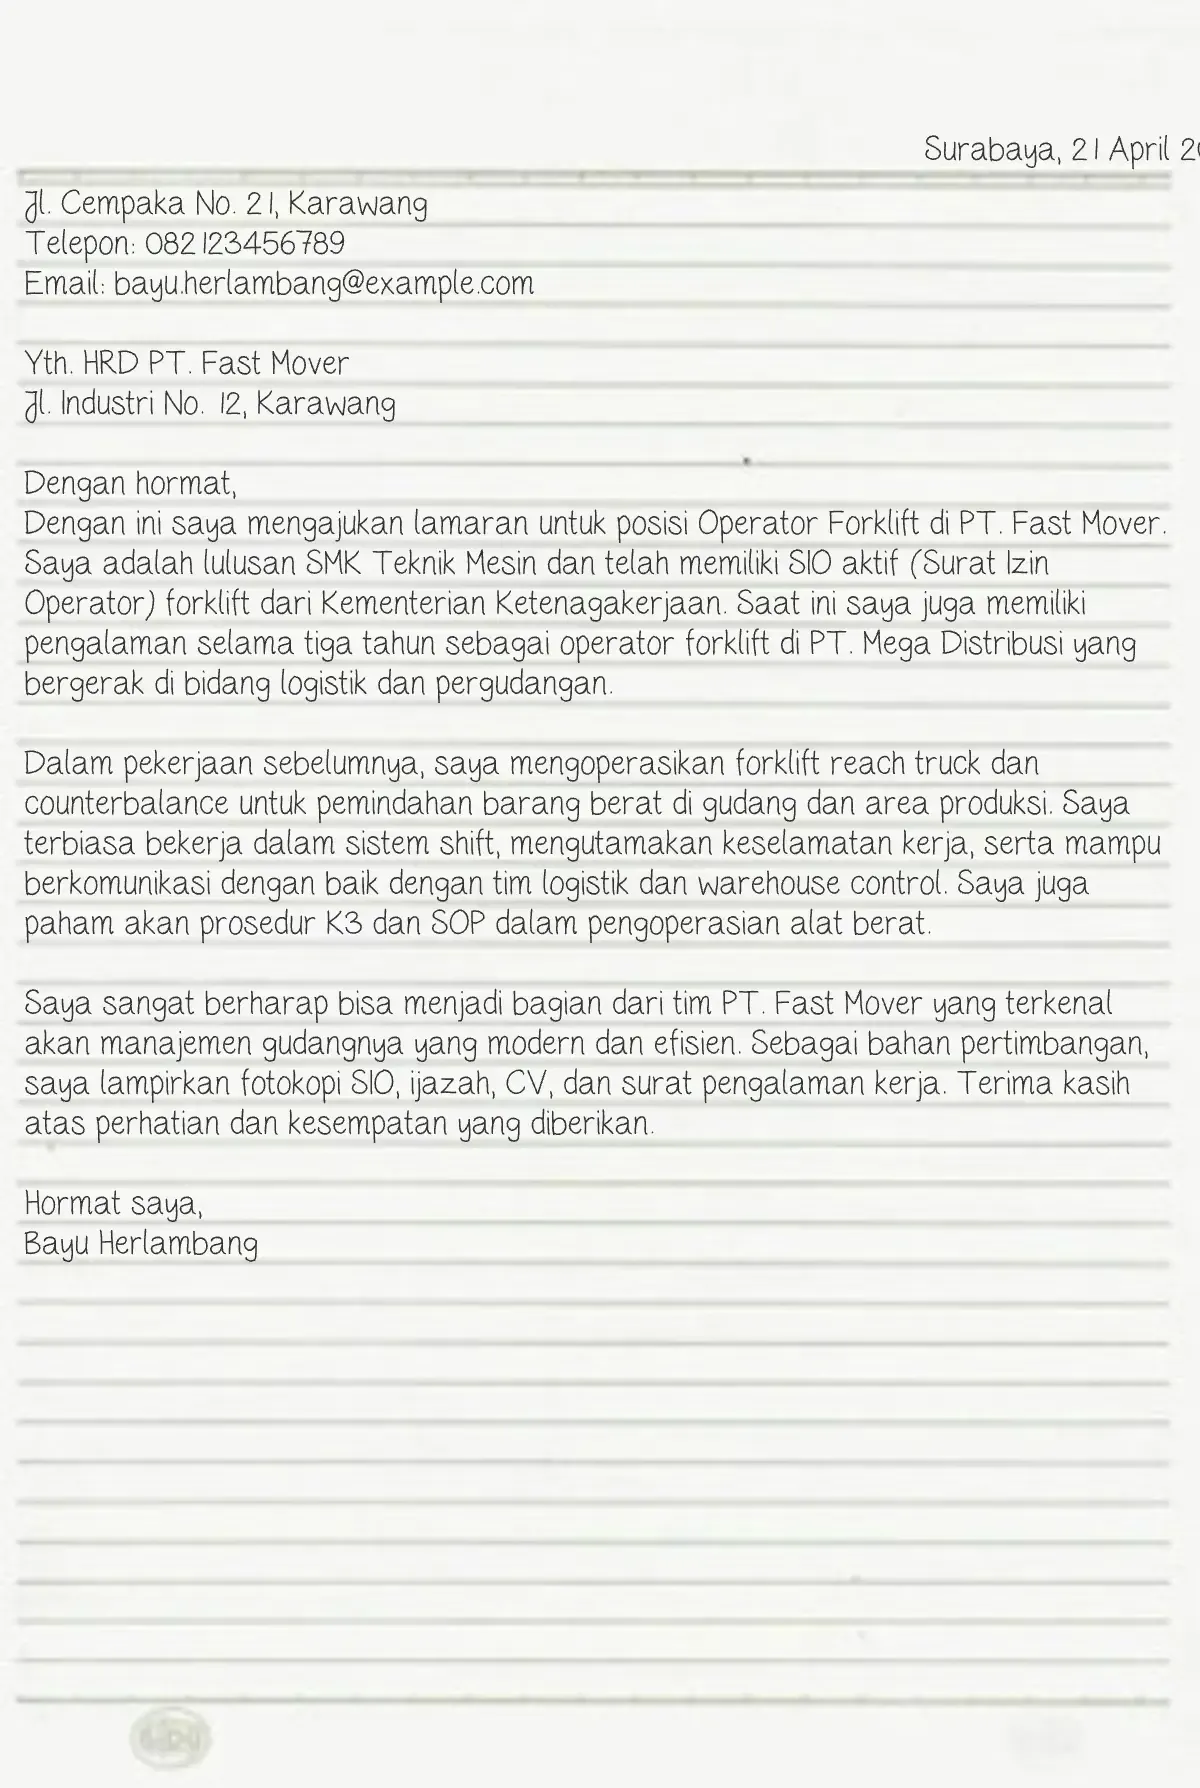 Surabaya, 21 April
Jl. Cempaka No. 21, Karawang
Telepon: 082123456789
Email: bayu.herlambang@example.com
Yth. HRD PT. Fast Mover
Jl. Industri No. 12, Karawang
Dengan hormat,
Dengan ini saya mengajukan lamaran untuk posisi Operator Forklift di PT. Fast Mover.
Saya adalah lulusan SMK Teknik Mesin dan telah memiliki SIO aktif (Surat Izin
Operator) forklift dari Kementerian Ketenagakerjaan. Saat ini saya juga memiliki
pengalaman selama tiga tahun sebagai operator forklift di PT. Mega Distribusi yang
bergerak di bidang logistik dan pergudangan.
Dalam pekerjaan sebelumnya, saya mengoperasikan forklift reach truck dan
counterbalance untuk pemindahan barang berat di gudang dan area produksi. Saya
terbiasa bekerja dalam sistem shift, mengutamakan keselamatan kerja, serta mampu
berkomunikasi dengan baik dengan tim logistik dan warehouse control. Saya juga
paham akan prosedur K3 dan SOP dalam pengoperasian alat berat.
Saya sangat berharap bisa menjadi bagian dari tim PT. Fast Mover yang terkenal
akan manajemen gudangnya yang modern dan efisien. Sebagai bahan pertimbangan,
saya lampirkan fotokopi SIO, ijazah, CV, dan surat pengalaman kerja. Terima kasih
atas perhatian dan kesempatan yang diberikan.
Hormat saya,
Bayu Herlambang